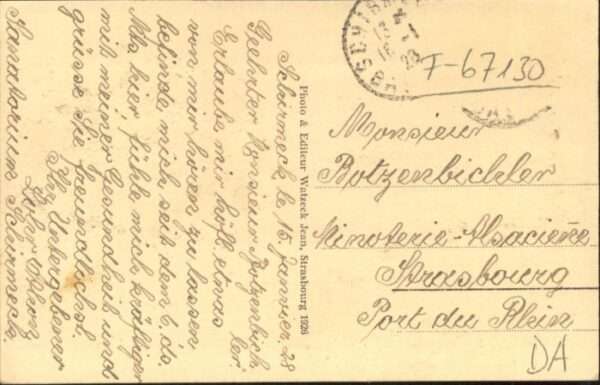 Schirmeck le 15 Janvier 28
Geehrter Monsieur Botzenbich
ler
Erlaube mir höfl. etwas
von mir hören zu lassen
befinde mich seit dem 6. ds.
Mts. hier, fühle mich kräftiger
mit meiner Gesundheit und
grüsse Sie freundlichst.
Ihr Untergebener
Sanatorium Schirmeck.
Photo & Editeur Watzeck Jean, Strasbourg 1926
SCHIRMECK
F-67130
Monsieur
Botzenbichler
Minoterie-Alsaciene
Strasbourg
Port du Rhin
DA